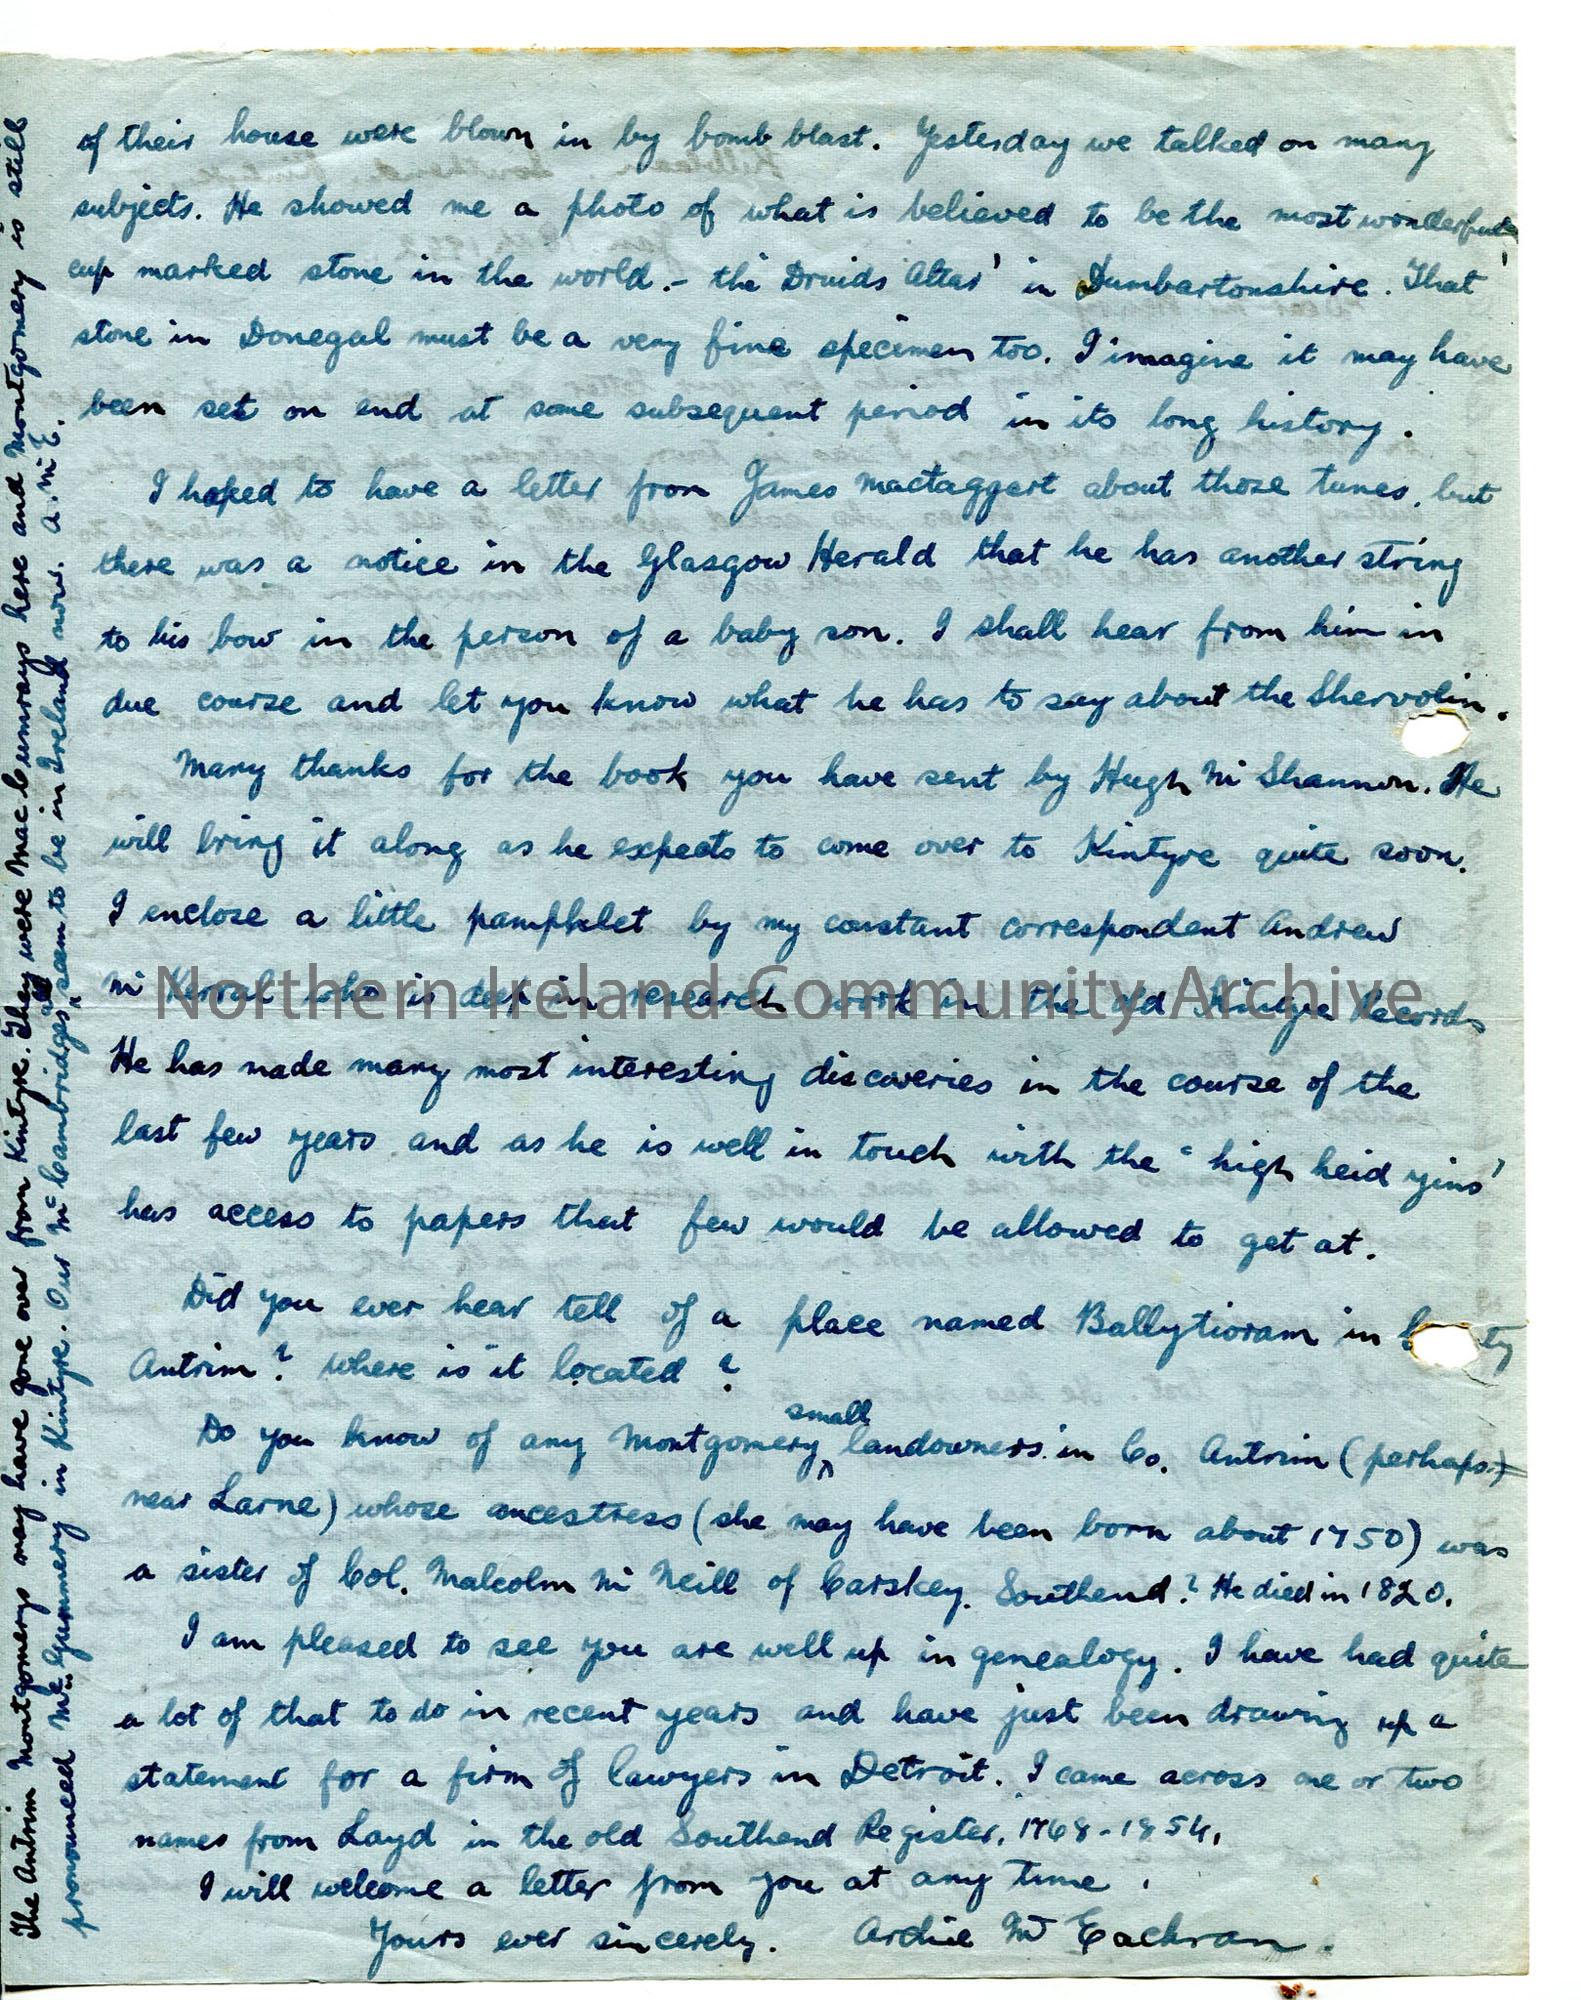 of their house were blown in by bomb blast. Yesterday we talked on many
subjects. He showed me a photo of what is believed to be the most wonderful
cup marked stone in the world. - the Druids Altar' in Dumbartonshire. That
stone in Donegal must be a very fine specimen too. I imagine it may have
been set on end at some subsequent period in its long history.
I hoped to have a letter from James Mactaggert about those tunes, but
there was a notice in the Glasgow Herald that he has another string
to his bow in the person of a baby son. I shall hear from him in
due course and let you know what he has to say about the Shervolin.
Many thanks for the book you have sent by Hugh Mc Shannon. He
will bring it along as he expects to come over to Kintyre quite soon.
I enclose a little pamphlet by my constant correspondent Andrew
Mc Kerral who is deep in research work in the old Kintyre Records
He has made many most interesting discoveries in the course of the
last few years and as he is well in touch with the "high heid yins'
has access to papers that few would be allowed to get at.
Did you ever hear tell of a place named Ballytioram in ty
Antrim? Where is it located?
Do you know of any Montgomery small landowners in Co. Antrim (perhaps)
near Larne) whose ancestress (she may have been born about 1750) was
a sister of Col. Malcolm Mc Neill of Carskey. Southend? He died in 1820.
I am pleased to see you are well up in genealogy. I have had quite
a lot of that to do in recent years and have just been drawing up a
statement for a firm of lawyers in Detroit. I came across one or two
names from Layd in the old Southend Register, 1768-1854.
I will welcome a letter from you at any time.
Yours ever sincerely. Archie Mc Eachran.
The Antrim Montgomerys may have gone over from Kintyre. They were MacCumrays here and Montgomery is still
pronounced McGummery in Kintyre. Our McCambridges all seem to be in Ireland now. A. Mc E.
Northern Ireland Community Archive